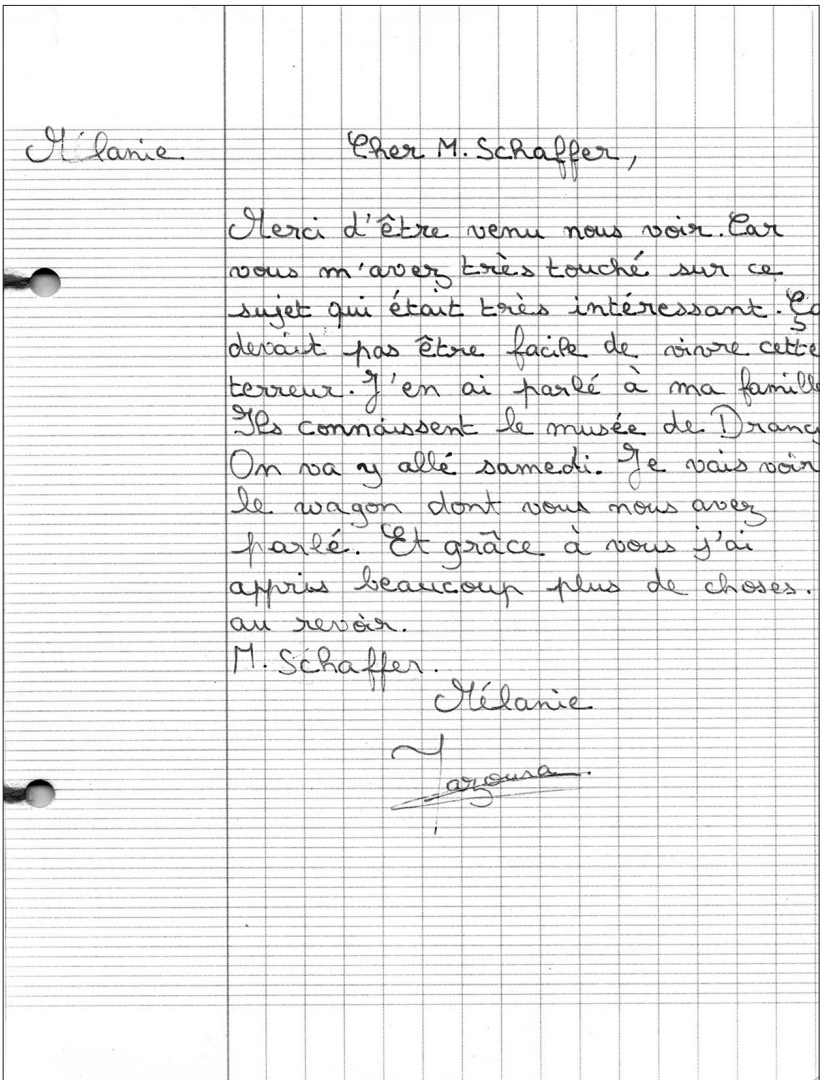 Mélanie. Cher M. Schaffer,
Merci d'être venu nous voir. Car
vous m'avez très touché sur ce
sujet qui était très intéressant. Ça
devait pas être facile de vivre cette
terreur. J'en ai parlé à ma famille
Ils connaissent le musée de Drancy
On va y allé samedi. Je vais voir
le wagon dont vous nous avez
parlé. Et grâce à vous j'ai
appris beaucoup plus de choses.
au revoir.
M. Schaffer.
Mélanie